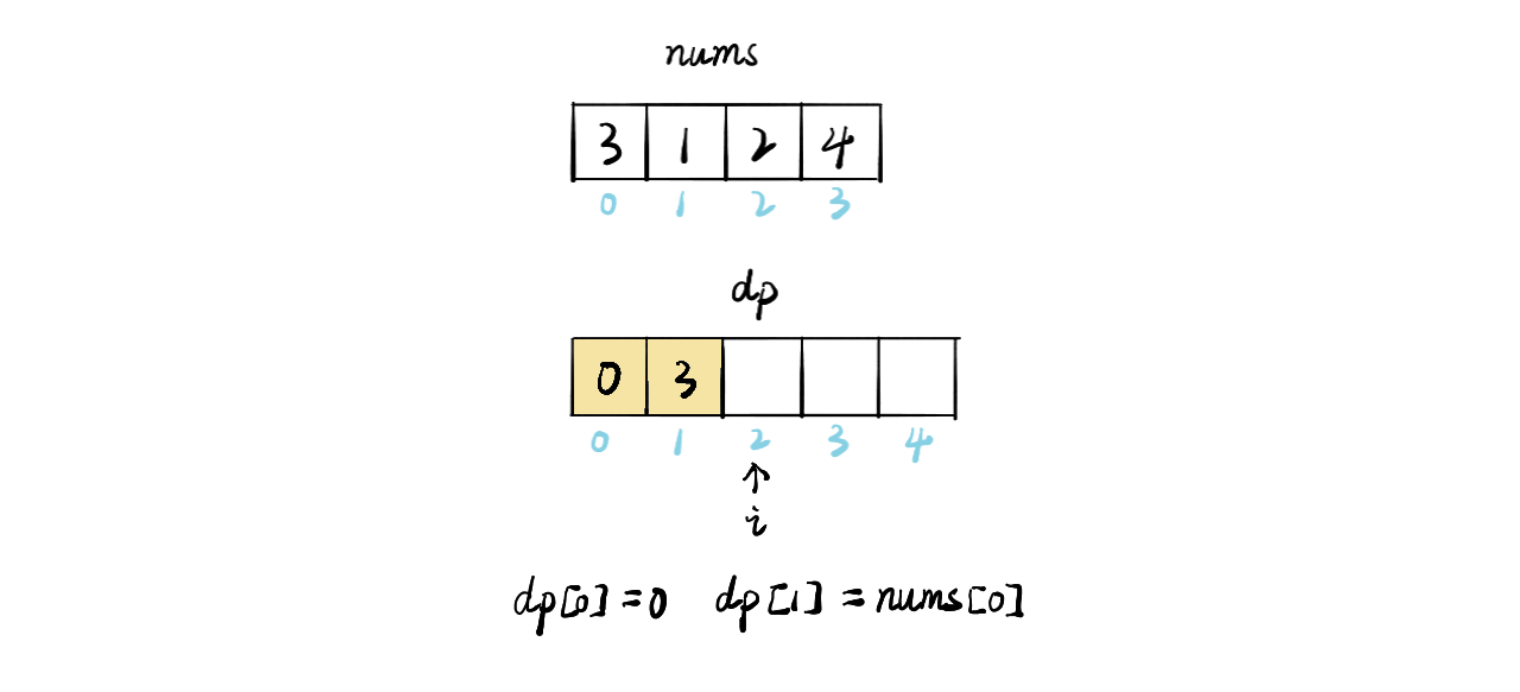 nums
3 1 2 4
0 1 2 3
dp
0 3
0 1 2 3 4
↑
i
dp[0]=0 dp[1]=nums[0]